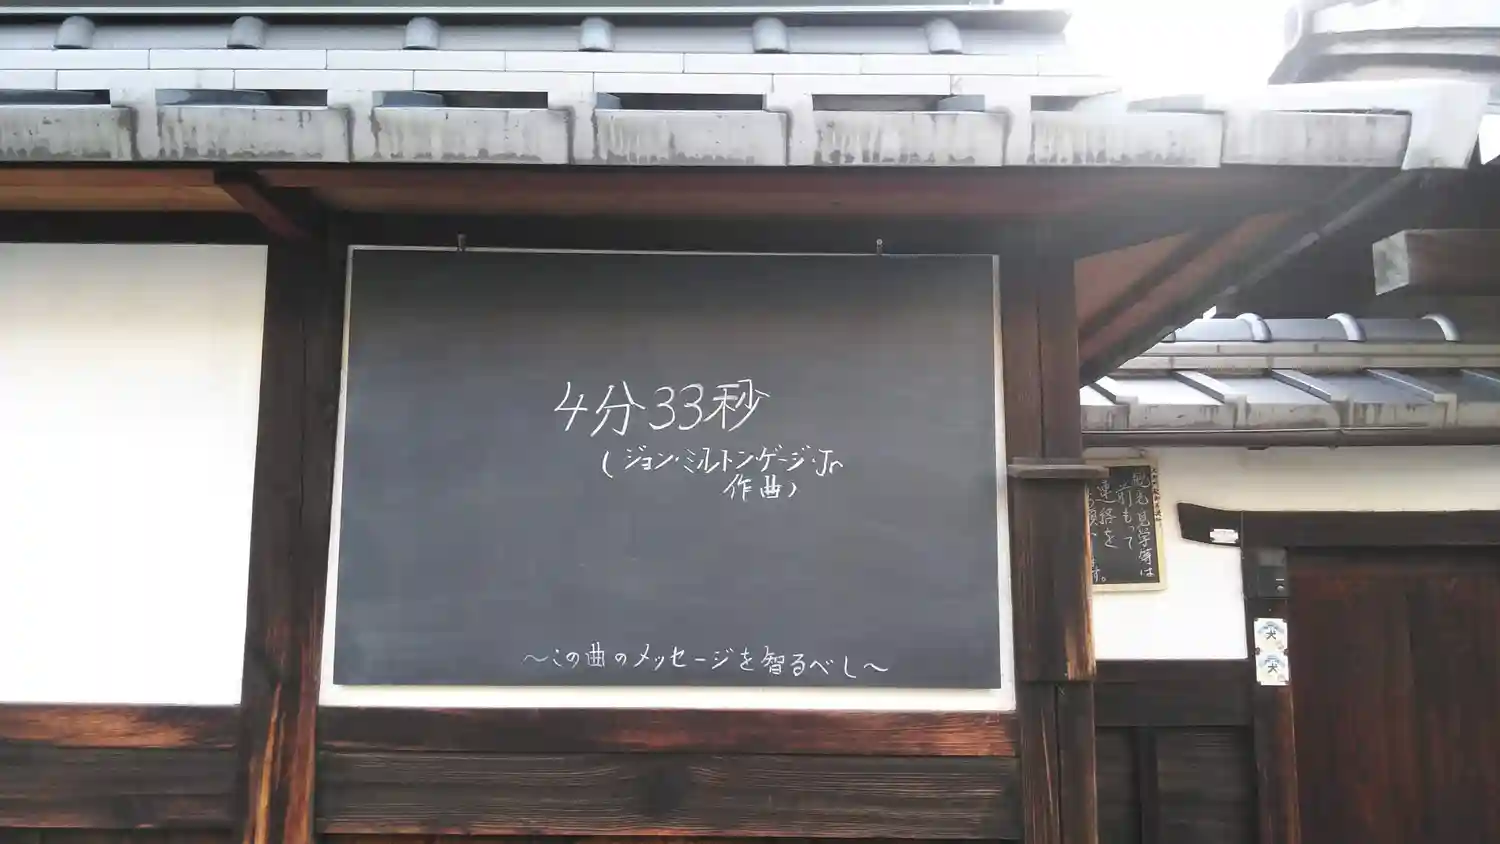 4分33秒
(ジョン・ミルトン・ゲージ・Jr
作曲)
〜この曲のメッセージを智るべし〜
見学等は
前もって
連絡を
犬
犬